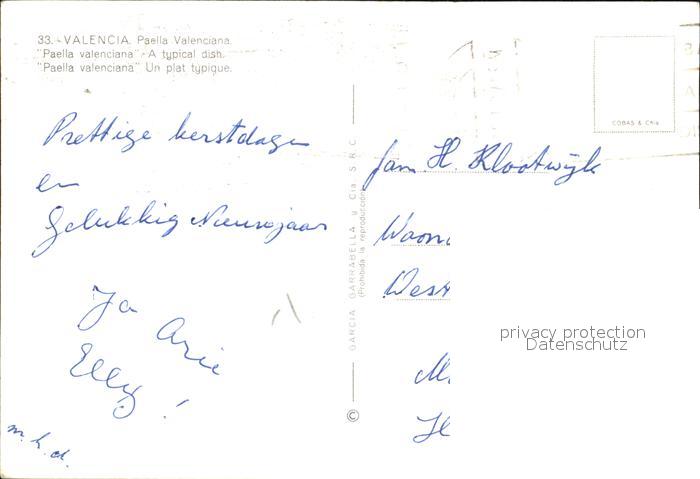 33. - VALENCIA. Paella Valenciana.
"Paella valenciana" - A typical dish.
"Paella valenciana" Un plat typique.
Prettige kerstdagen
en
Gelukkig Nieuwjaar
Ja
Arie
Elly!
m. h. d.
GARCIA GARRABELLA y Cia. S R C
(Prohibida la reproducción)
©
COBAS & Cía
fam. H. Klootwijk
Woon
West
M.
H
privacy protection
Datenschutz